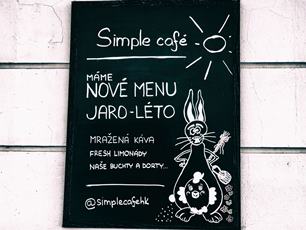 Simple café
MÁME
NOVÉ MENU
JARO-LÉTO
MRAŽENÁ KÁVA
FRESH LIMONÁDY
NAŠE BUCHTY A DORTY...
@simplecafehk